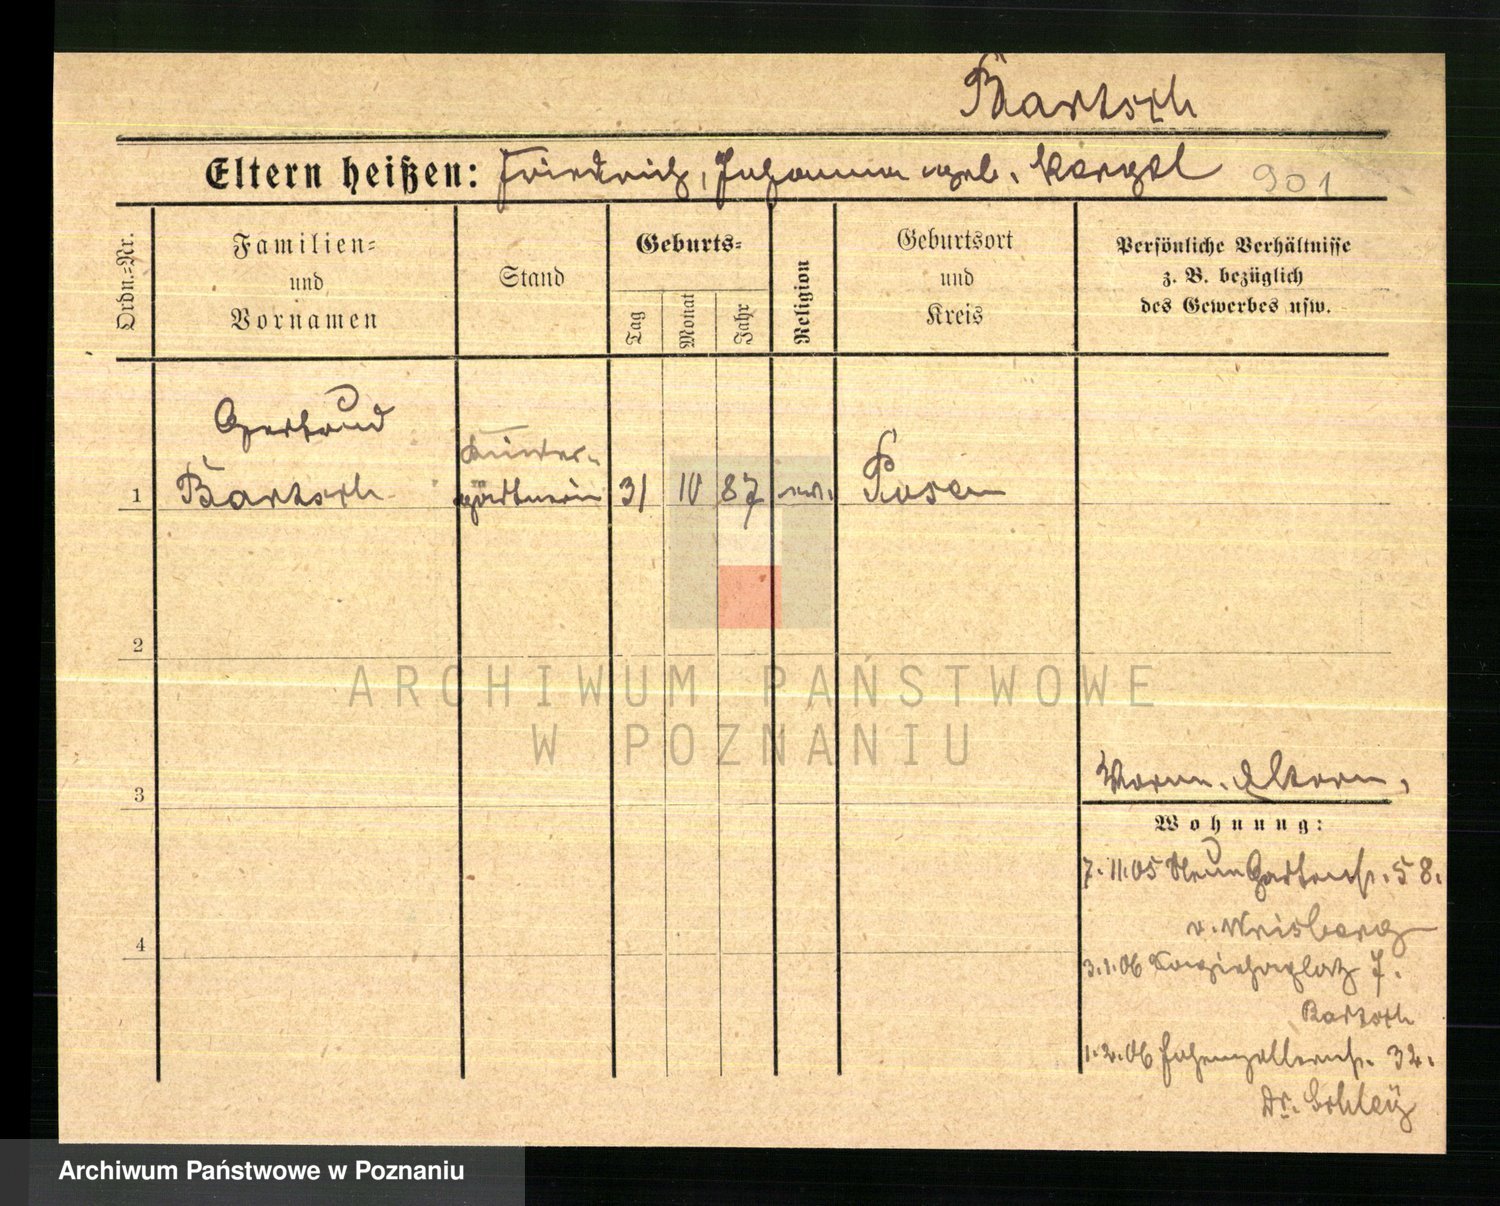 Bartsch
Eltern heißen: Friedrich, Johanna geb. 901
Ordn.=Nr.
Familien=
und
Vornamen
Stand
Geburts=
Tag
Monat
Jahr
Religion
Geburtsort
und
Kreis
Persönliche Verhältnisse
z. B. bezüglich
des Gewerbes usw.
Gertrud
Bartsch
Kinder-
gärtnerin
1 31 10 87 ev. Posen
2
ARCHIWUM PAŃSTWOWE
W POZNANIU
3
Vorm. Eltern.
Wohnung:
7.11.05 Neue Gartenstr. 58.
v. Wrisberg
4
3.1.06 platz 7.
Bartsch
1.2.06 Hohenzollernstr. 32.
Dr. Schley
Archiwum Państwowe w Poznaniu